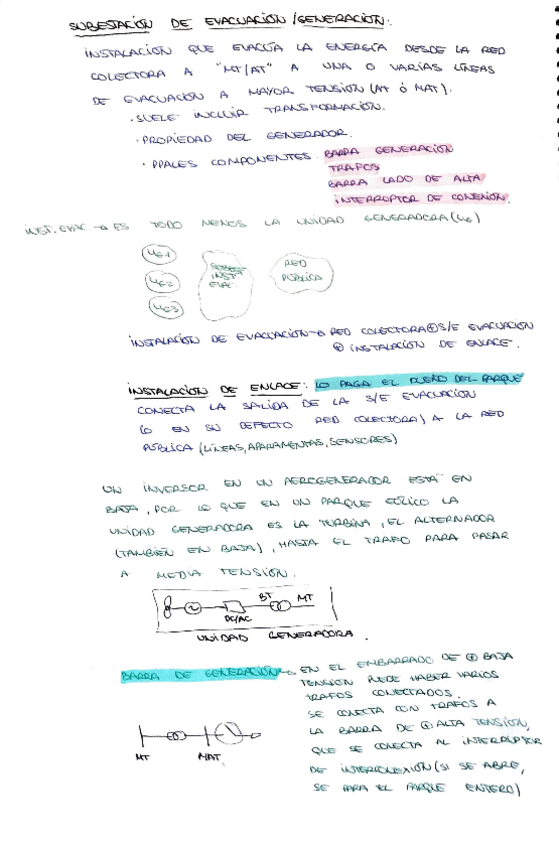 SUBESTACIÓN DE EVACUACIÓN/GENERACIÓN.
INSTALACIÓN QUE EVACÚA LA ENERGÍA DESDE LA RED
COLECTORA A "MT/AT" A UNA O VARIAS LÍNEAS
DE EVACUACIÓN A MAYOR TENSIÓN (AT Ó MAT).
· SUELE INCLUIR TRANSFORMACIÓN.
· PROPIEDAD DEL GENERADOR.
· PPALES COMPONENTES BARRA GENERACIÓN
TRAFOS
BARRA LADO DE ALTA
INTERRUPTOR DE CONEXIÓN.
INST. EVAC → ES TODO MENOS LA UNIDAD GENERADORA (UG)
UG1
UG2
UG3
INSTª
EVAC.
RED
PÚBLICA
INSTALACIÓN DE EVACUACIÓN → RED COLECTORA ⊕ S/E EVACUACIÓN
⊕ INSTALACIÓN DE ENLACE.
INSTALACIÓN DE ENLACE: LO PAGA EL DUEÑO DEL PARQUE
CONECTA LA SALIDA DE LA S/E EVACUACIÓN
(O EN SU DEFECTO RED COLECTORA) A LA RED
PÚBLICA (LÍNEAS, APARAMENTAS, SENSORES)
UN INVERSOR EN UN AEROGENERADOR ESTÁ EN
BAJA, POR LO QUE EN UN PARQUE EÓLICO LA
UNIDAD GENERADORA ES LA TURBINA, EL ALTERNADOR
(TAMBIÉN EN BAJA), HASTA EL TRAFO PARA PASAR
A MEDIA TENSIÓN.
BT MT
DC/AC
UNIDAD GENERADORA.
BARRA DE GENERACIÓN → EN EL EMBARRADO DE ⊕ BAJA
TENSIÓN PUEDE HABER VARIOS
TRAFOS CONECTADOS.
SE CONECTA CON TRAFOS A
LA BARRA DE ⊕ ALTA TENSIÓN,
QUE SE CONECTA AL INTERRUPTOR
DE INTERCONEXIÓN (SI SE ABRE,
SE PARA EL PARQUE ENTERO)
MT MAT